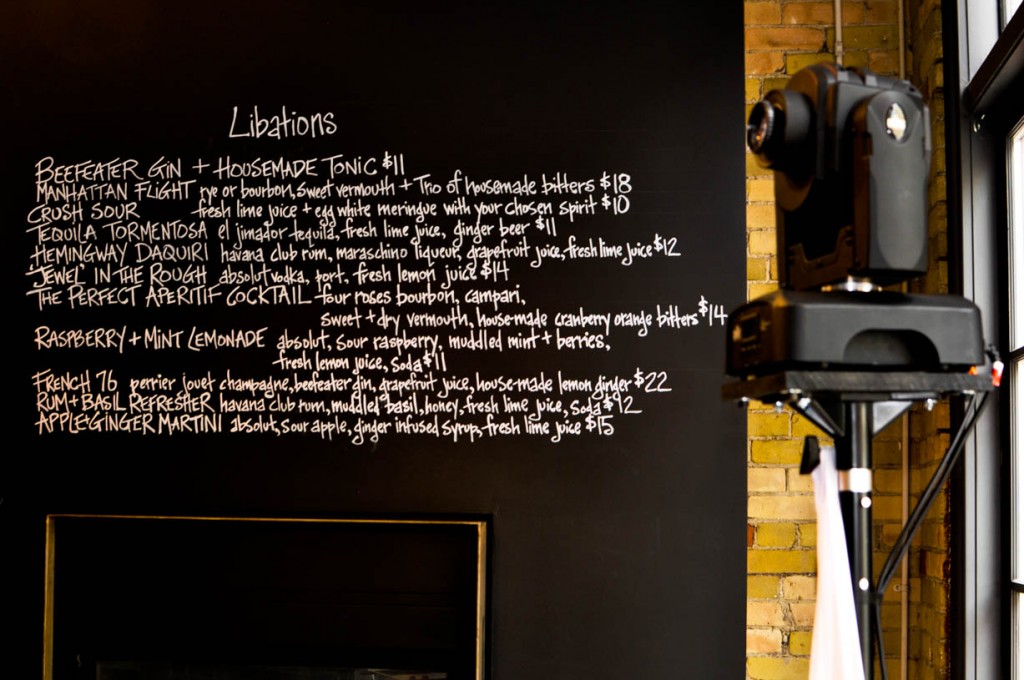 Libations
BEEFEATER GIN + HOUSEMADE TONIC $11
MANHATTAN FLIGHT rye or bourbon, sweet vermouth + Trio of housemade bitters $18
CRUSH SOUR fresh lime juice + egg white meringue with your chosen spirit $10
TEQUILA TORMENTOSA el jimador tequila, fresh lime juice, ginger beer $11
HEMINGWAY DAQUIRI havana club rum, maraschino liqueur, grapefruit juice, fresh lime juice $12
'JEWEL' IN THE ROUGH absolut vodka, port, fresh lemon juice $14
THE PERFECT APERITIF COCKTAIL four roses bourbon, campari,
sweet + dry vermouth, house-made cranberry orange bitters $14
RASPBERRY + MINT LEMONADE absolut, sour raspberry, muddled mint + berries,
fresh lemon juice, soda $11
FRENCH 76 perrier jouet champagne, beefeater gin, grapefruit juice, house-made lemon ginger $22
RUM + BASIL REFRESHER havana club rum, muddled basil, honey, fresh lime juice, soda $12
APPLE GINGER MARTINI absolut, sour apple, ginger infused syrup, fresh lime juice $15